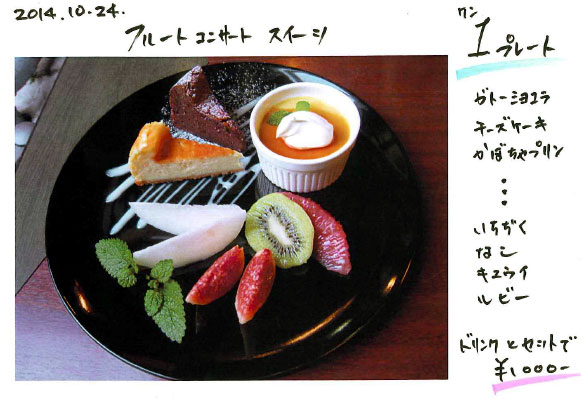 2014.10.24.
フルートコンサート スイーツ
ワン
1プレート
ガトーショコラ
チーズケーキ
かぼちゃプリン
いちぢく
なし
キュウイ
ルビー
ドリンクとセットで
¥1000-